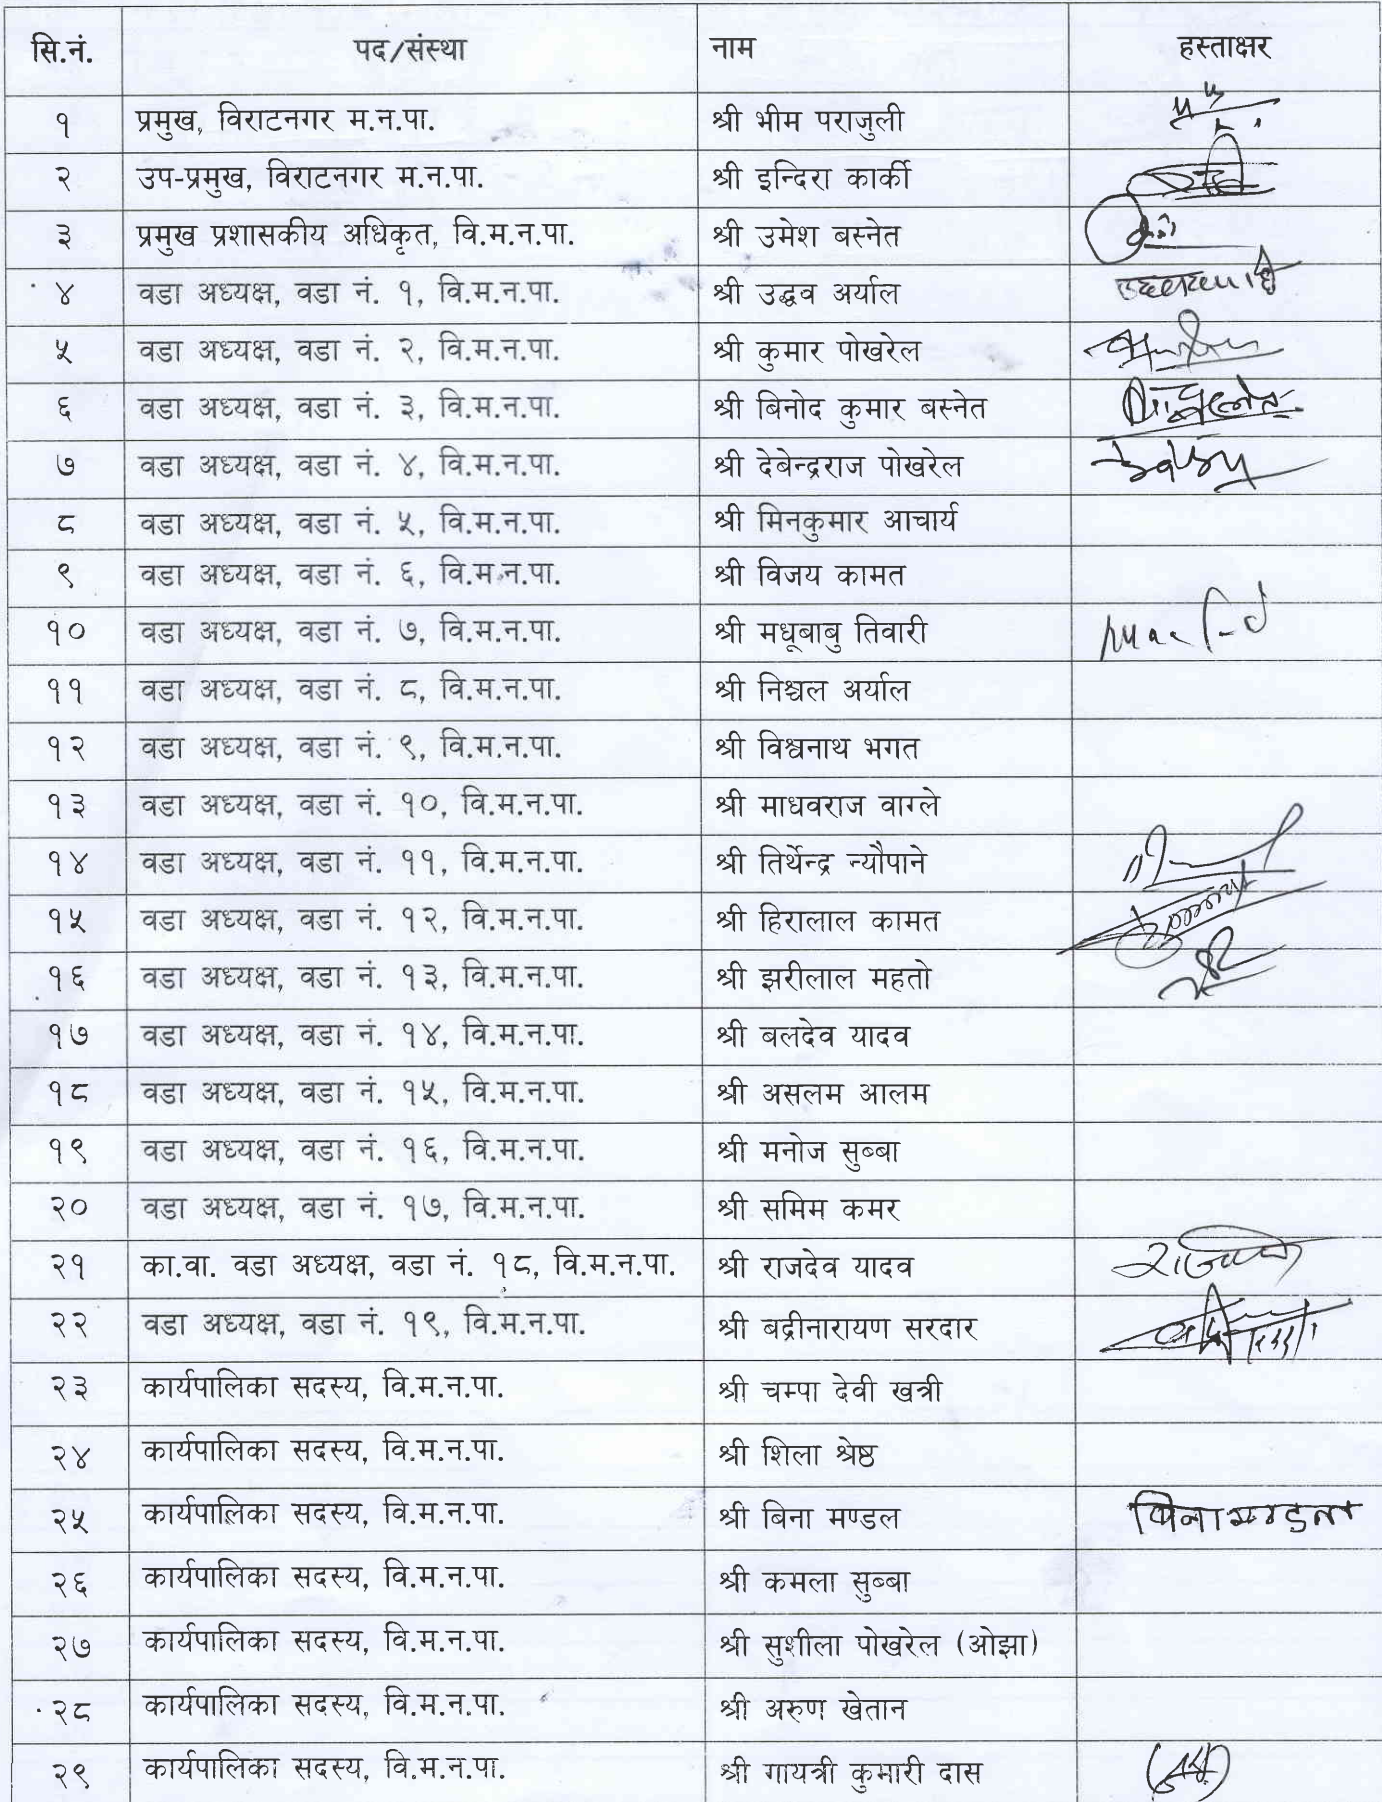 सि.नं. पद/संस्था नाम हस्ताक्षर
१ प्रमुख, विराटनगर म.न.पा. श्री भीम पराजुली
२ उप-प्रमुख, विराटनगर म.न.पा. श्री इन्दिरा कार्की
३ प्रमुख प्रशासकीय अधिकृत, वि.म.न.पा. श्री उमेश बस्नेत
४ वडा अध्यक्ष, वडा नं. १, वि.म.न.पा. श्री उद्धव अर्याल
५ वडा अध्यक्ष, वडा नं. २, वि.म.न.पा. श्री कुमार पोखरेल
६ वडा अध्यक्ष, वडा नं. ३, वि.म.न.पा. श्री बिनोद कुमार बस्नेत
७ वडा अध्यक्ष, वडा नं. ४, वि.म.न.पा. श्री देबेन्द्रराज पोखरेल
८ वडा अध्यक्ष, वडा नं. ५, वि.म.न.पा. श्री मिनकुमार आचार्य
९ वडा अध्यक्ष, वडा नं. ६, वि.म.न.पा. श्री विजय कामत
१० वडा अध्यक्ष, वडा नं. ७, वि.म.न.पा. श्री मधूबाबु तिवारी
११ वडा अध्यक्ष, वडा नं. ८, वि.म.न.पा. श्री निश्चल अर्याल
१२ वडा अध्यक्ष, वडा नं. ९, वि.म.न.पा. श्री विश्वनाथ भगत
१३ वडा अध्यक्ष, वडा नं. १०, वि.म.न.पा. श्री माधवराज वाग्ले
१४ वडा अध्यक्ष, वडा नं. ११, वि.म.न.पा. श्री तिर्थेन्द्र न्यौपाने
१५ वडा अध्यक्ष, वडा नं. १२, वि.म.न.पा. श्री हिरालाल कामत
१६ वडा अध्यक्ष, वडा नं. १३, वि.म.न.पा. श्री झरीलाल महतो
१७ वडा अध्यक्ष, वडा नं. १४, वि.म.न.पा. श्री बलदेव यादव
१८ वडा अध्यक्ष, वडा नं. १५, वि.म.न.पा. श्री असलम आलम
१९ वडा अध्यक्ष, वडा नं. १६, वि.म.न.पा. श्री मनोज सुब्बा
२० वडा अध्यक्ष, वडा नं. १७, वि.म.न.पा. श्री समिम कमर
२१ का.वा. वडा अध्यक्ष, वडा नं. १८, वि.म.न.पा. श्री राजदेव यादव
२२ वडा अध्यक्ष, वडा नं. १९, वि.म.न.पा. श्री बद्रीनारायण सरदार
२३ कार्यपालिका सदस्य, वि.म.न.पा. श्री चम्पा देवी खत्री
२४ कार्यपालिका सदस्य, वि.म.न.पा. श्री शिला श्रेष्ठ
२५ कार्यपालिका सदस्य, वि.म.न.पा. श्री बिना मण्डल बिना मण्डल
२६ कार्यपालिका सदस्य, वि.म.न.पा. श्री कमला सुब्बा
२७ कार्यपालिका सदस्य, वि.म.न.पा. श्री सुशीला पोखरेल (ओझा)
२८ कार्यपालिका सदस्य, वि.म.न.पा. श्री अरुण खेतान
२९ कार्यपालिका सदस्य, वि.म.न.पा. श्री गायत्री कुमारी दास